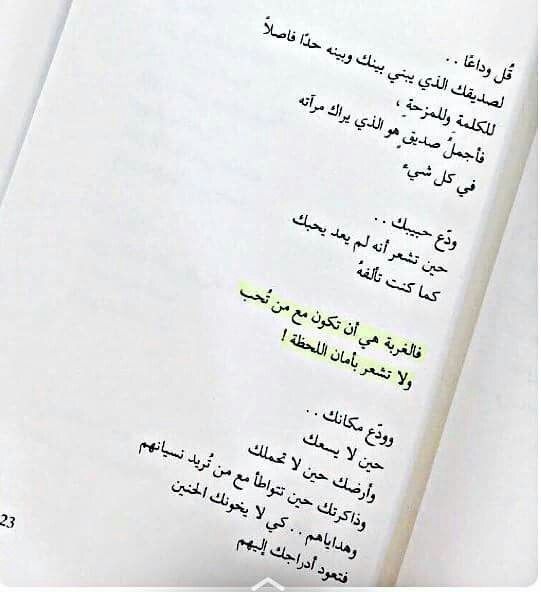 قُل وداعًا . .
لصديقك الذي يبني بينك وبينه حدًا فاصلاً
للكلمةِ وللمزحةِ ،
فأجملُ صديقٍ هو الذي يراك مرآته
في كل شيءٍ
ودّع حبيبك . .
حين تشعر أنه لم يعد يحبك
كما كنت تألفهُ
فالغربة هي أن تكون مع من تُحب
ولا تشعر بأمان اللحظة !
وودّع مكانك . .
حين لا يسعك
وأرضك حين لا تحملك
وذاكرتك حين تتواطأ مع من تُريد نسيانهم
وهداياهم . . كي لا يخونك الحنين
فتعود أدراجك إليهم
23